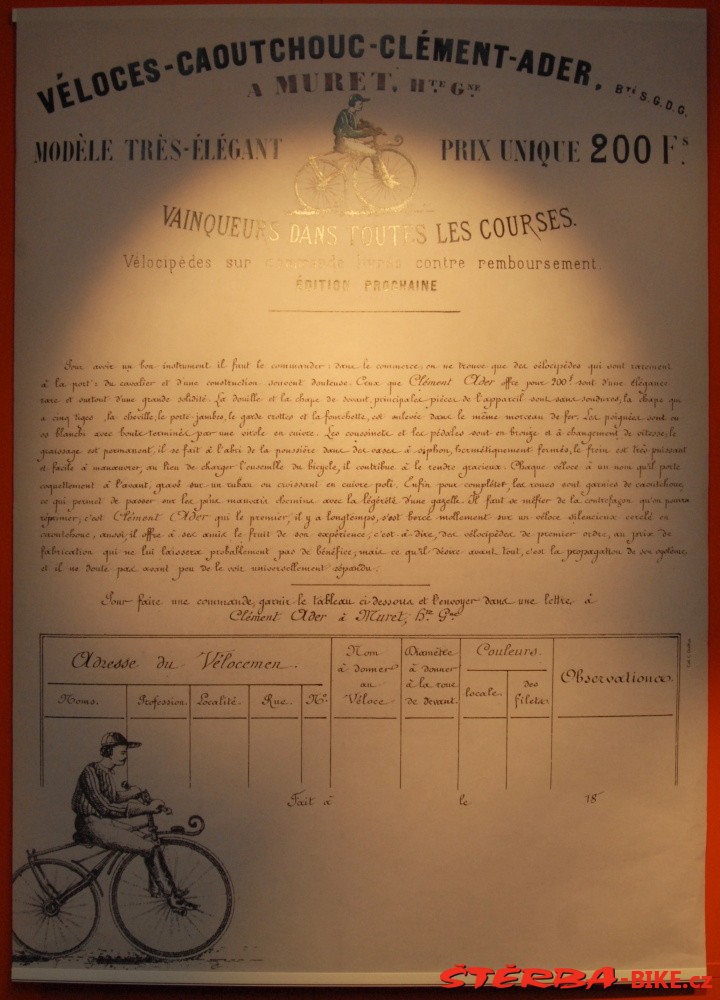 VÉLOCES-CAOUTCHOUC-CLÉMENT-ADER, Bᵗᵉ S.G.D.G.
A MURET, Hᵗᵉ Gⁿᵉ
MODÈLE TRÈS-ÉLÉGANT PRIX UNIQUE 200 Fˢ.
VAINQUEURS DANS TOUTES LES COURSES.
Vélocipèdes sur commande livrés contre remboursement.
ÉDITION PROCHAINE
Pour avoir un bon instrument il faut le commander: dans le commerce, on ne trouve que des vélocipèdes qui vont rarement
à la portᵉ: du cavalier et d'une construction souvent douteuse: Ceux que Clément Ader offre pour 200ᶠ sont d'une élégance
rare et surtout d'une grande solidité. La douille et la chape de devant, principales pièces de l'appareil sont sans soudures, la chape qui
a cinq tiges, la cheville, le porte-jambes, le garde crottes et la fourchette, est enlevée dans le même morceau de fer. Les poignées sont en
os blanchi avec bouts terminés par une virole en cuivre. Les coussinets et les pédales sont en bronze et à changement de vitesse, le
graissage est permanent, il se fait à l'abri de la poussière dans des vases à siphon, hermétiquement fermés, le frein est très puissant
et facile à manœuvrer, au lieu de charger l'ensemble du bicycle, il contribue à le rendre gracieux. Chaque véloce a un nom qu'il porte
coquettement à l'avant, gravé sur un ruban ou croissant en cuivre poli. Enfin pour compléter, les roues sont garnies de caoutchouc,
ce qui permet de passer sur les plus mauvais chemins avec la légèreté d'une gazelle. Il faut se méfier de la contrefaçon qu'on pourra
réprimer; c'est Clément Ader qui le premier, il y a longtemps, s'est bercé mollement sur un véloce silencieux cerclé en
caoutchouc; aussi, il offre à ses amis le fruit de son expérience, c'est-à-dire, des vélocipèdes de premier ordre, au prix de
fabrication qui ne lui laissera probablement pas de bénéfice, mais ce qu'il désire avant tout, c'est la propagation de son système,
et il ne doute pas avant peu de le voir universellement répandu.
Pour faire une commande, garnir le tableau ci-dessous et l'envoyer dans une lettre à
Clément Ader à Muret, Hᵗᵉ Gⁿᵉ
Adresse du Vélocemen.
Noms. Profession. Localité. Rue. Nº.
Nom
à donner
au
Véloce
Diamètre
à donner
à la roue
de devant.
Couleurs.
locale.
des
filets.
Observations.
Fait à le 18
ŠTĚRBA-BIKE.cz